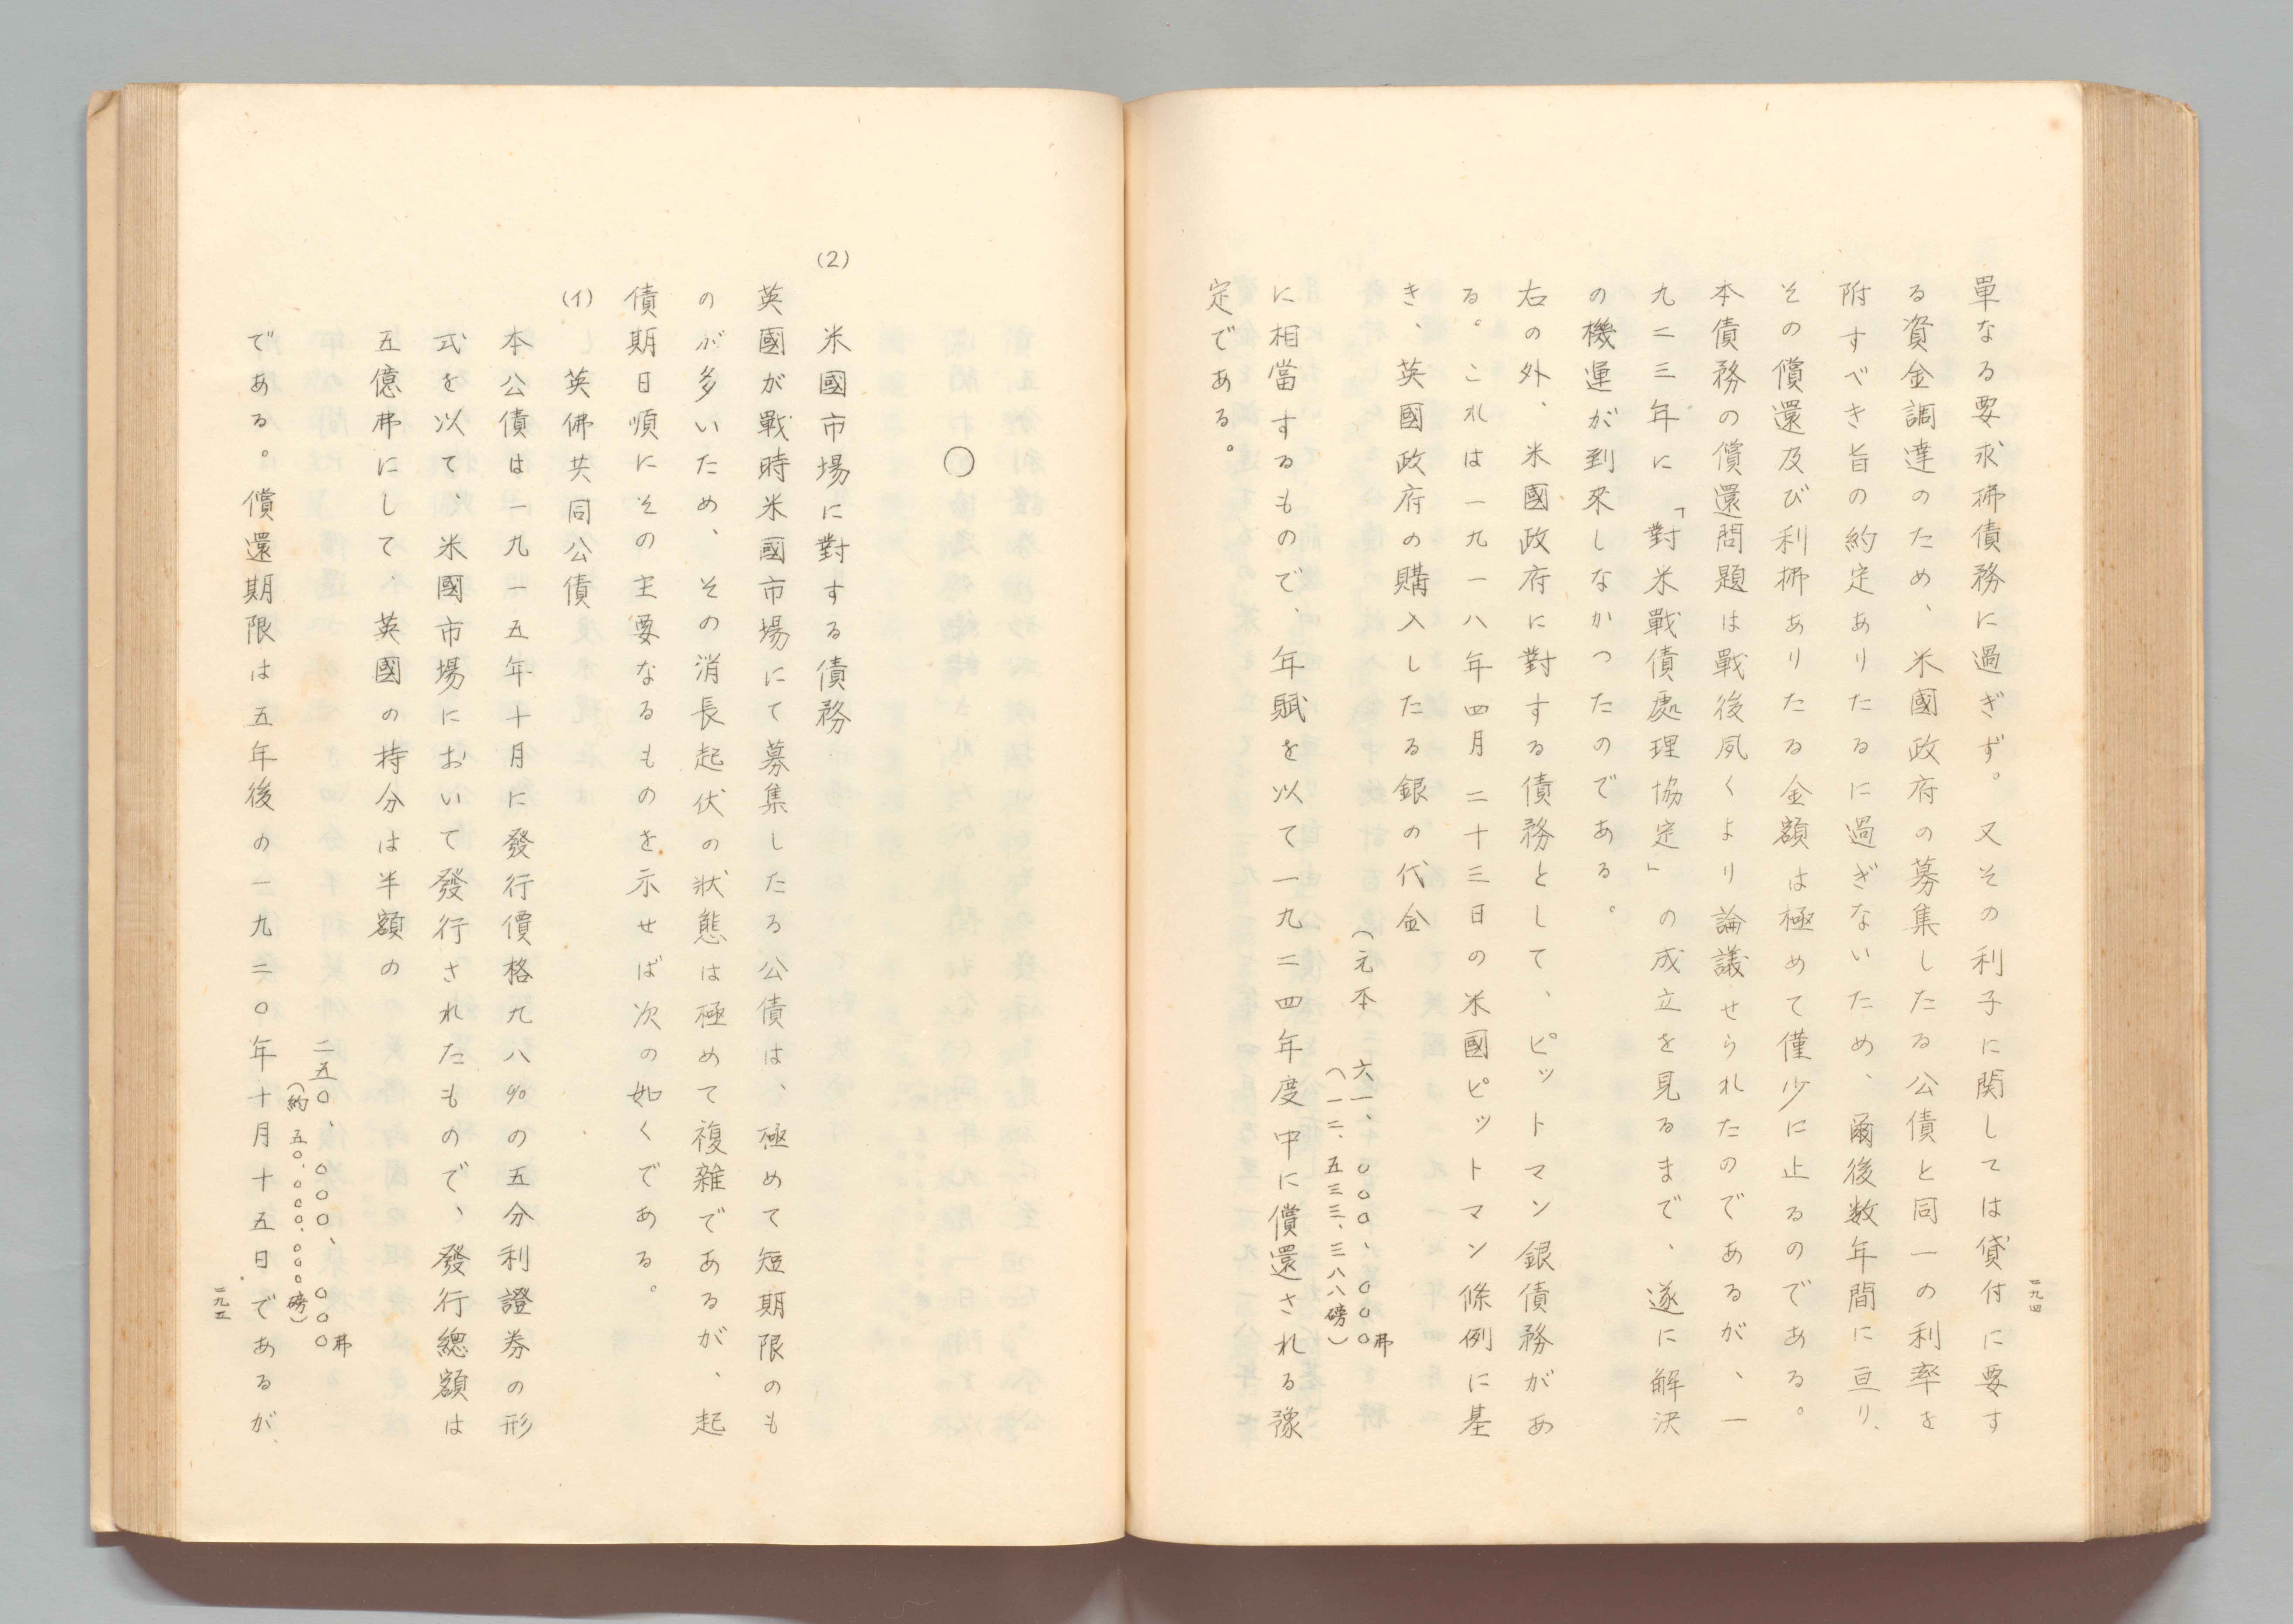 二九四
單なる要求拂債務に過ぎず。又その利子に関しては貸付に要す
る資金調達のため、米國政府の募集したる公債と同一の利率を
附すべき旨の約定ありたるに過ぎないため、爾後数年間に亘り、
その償還及び利拂ありたる金額は極めて僅少に止るのである。
本債務の償還問題は戰後夙くより論議せられたのであるが、一
九二三年に「對米戰債處理協定」の成立を見るまで、遂に解決
の機運が到來しなかつたのである。
右の外、米國政府に對する債務として、ピットマン銀債務があ
る。これは一九一八年四月二十三日の米國ピットマン條例に基
き、英國政府の購入したる銀の代金
(元本 六一、〇〇〇、〇〇〇弗
(一二、五三三、三八八磅)
に相當するもので、年賦を以て一九二四年度中に償還される豫
定である。
〇
(2) 米國市場に對する債務
英國が戰時米國市場にて募集したる公債は、極めて短期限のも
のが多いため、その消長起伏の狀態は極めて複雜であるが、起
債期日順にその主要なるものを示せば次の如くである。
(イ) 英佛共同公債
本公債は一九一五年十月に發行價格九八%の五分利證券の形
式を以て、米國市場において發行されたもので、發行總額は
五億弗にして、英國の持分は半額の
二五〇、〇〇〇、〇〇〇弗
(約 五〇、〇〇〇、〇〇〇磅)
である。償還期限は五年後の一九二〇年十月十五日であるが、
二九五